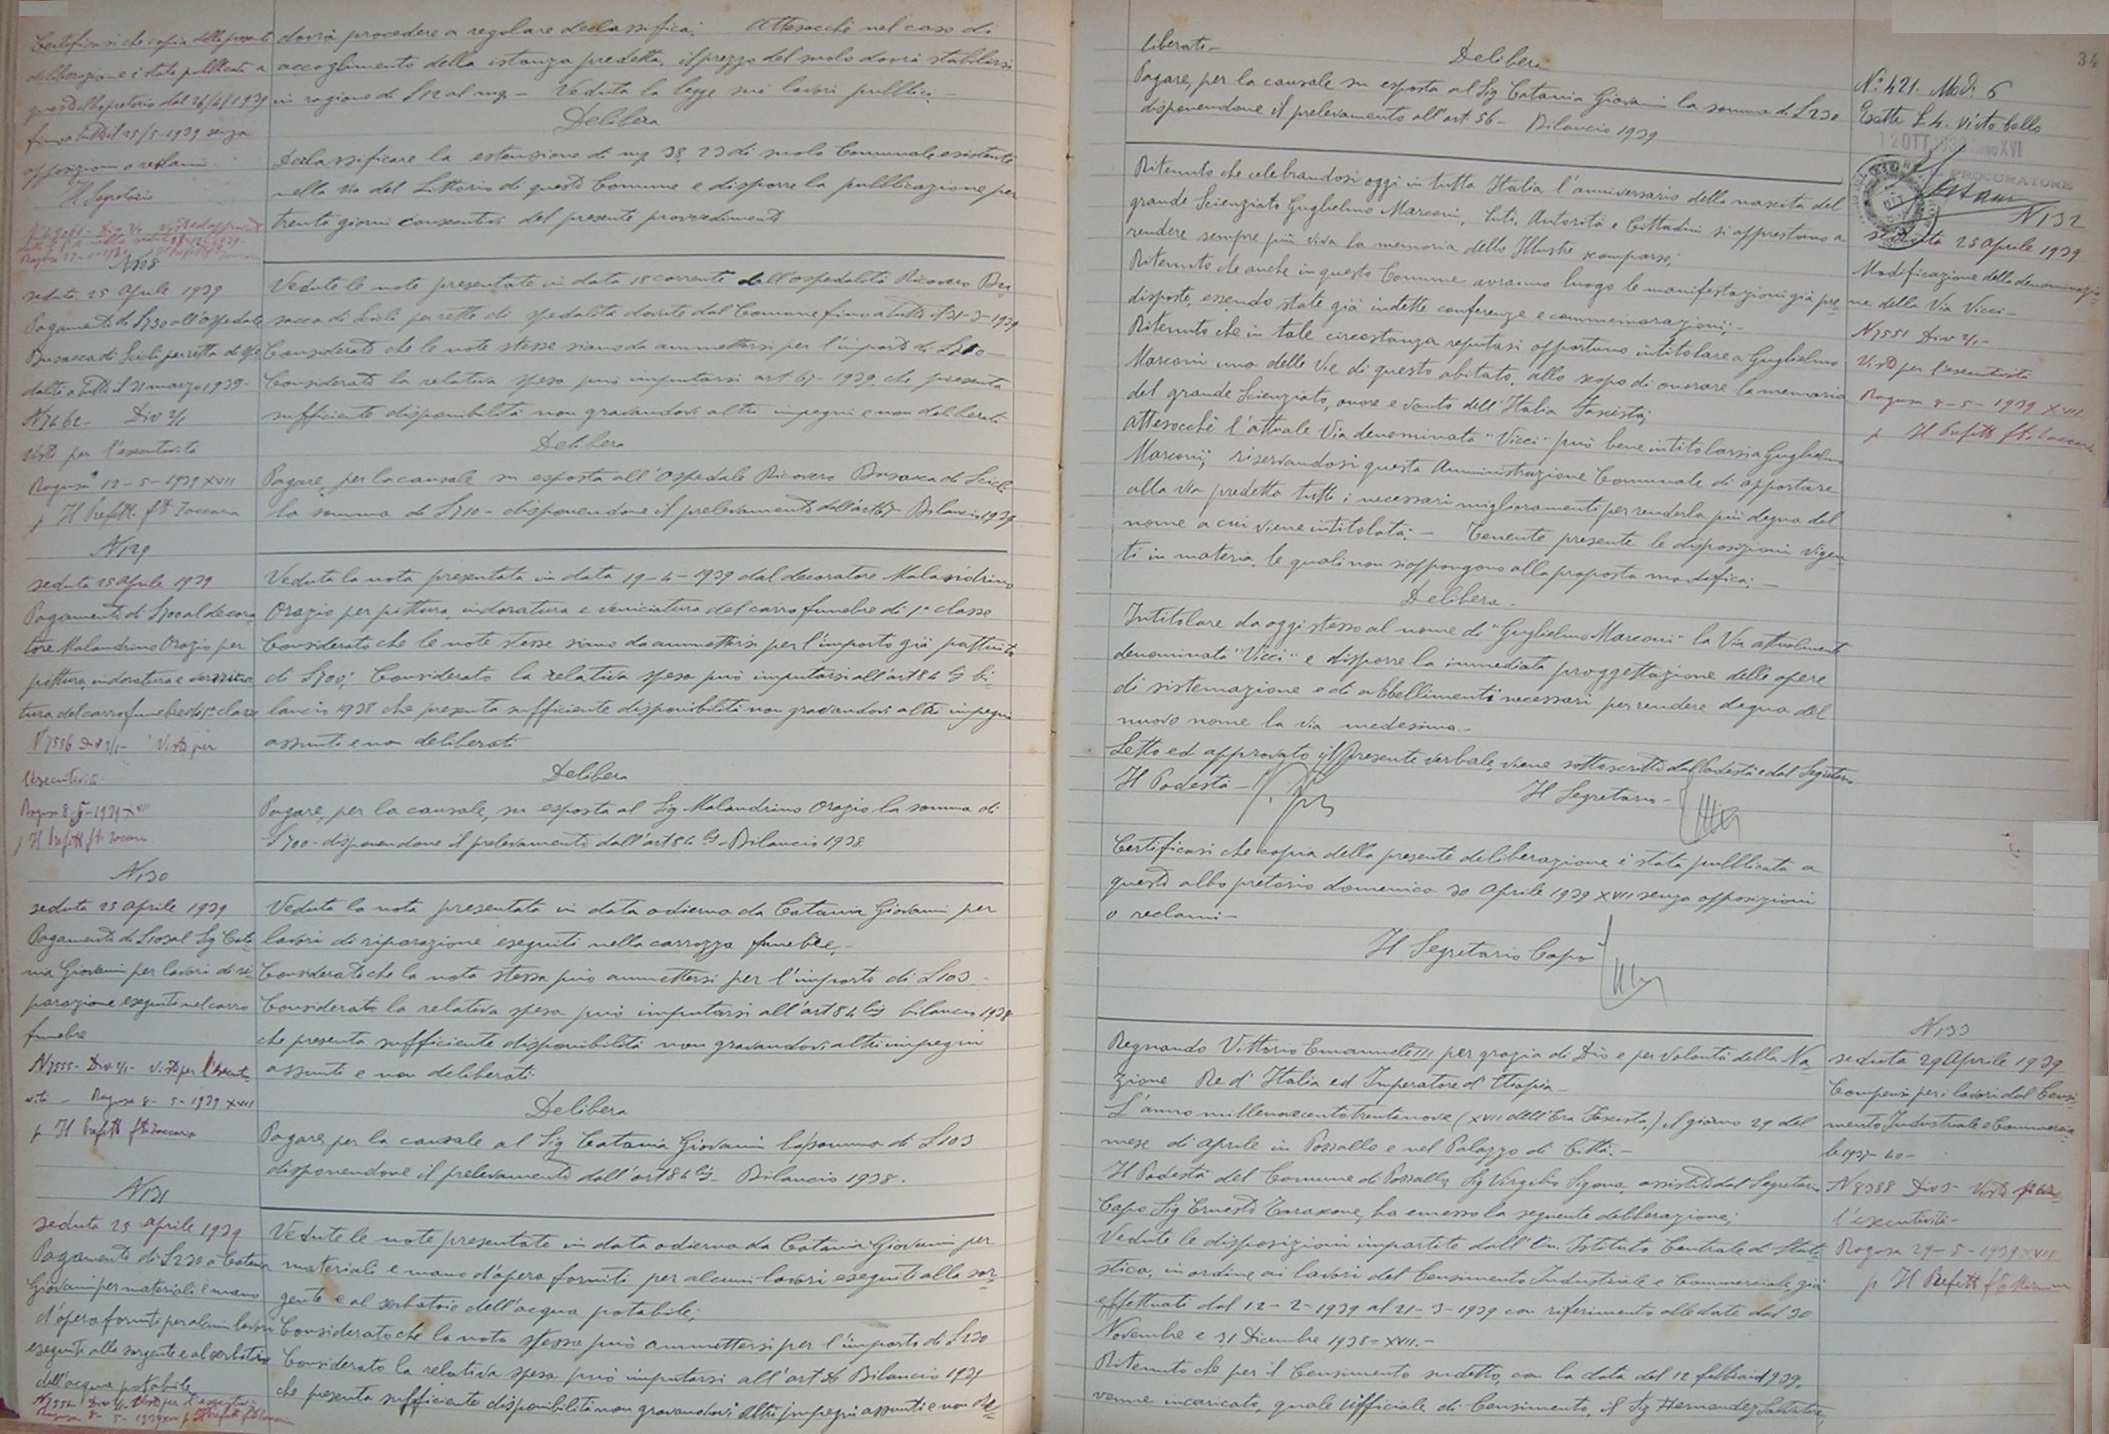 Certificasi che copia della presente
deliberazione è stata pubblicata a
questo albo pretorio dal 26/4/1939
fino a tutto il 25/5-1939 senza
opposizioni o reclami
Il Segretario
N128
seduta 25 Aprile 1939
Pagamento di £ 730 all'ospedale
Busacca di Scicli per retta di spe
dalità a tutto il 31 marzo 1939-
N7462- Div 2/1
visto per l'esecutività
Ragusa 12-5-1939 XVII
p Il Prefetto fto Zaccaria
N129
seduta 25 Aprile 1939
Pagamento di £ 700 al decora
tore Malandrino Orazio per
pittura, indoratura e vernicia
tura del carro funebre di 1ª classe
N7556 Div 2/1- Visto per
l'esecutività
Ragusa 8-5-1939 XVII
p Il Prefetto fto Zaccaria
N130
seduta 25 aprile 1939
Pagamento di £103 al Sig Cata
nia Giovanni per lavori di ri
parazione eseguiti nel carro
funebre
N7555- Div 2/1- Visto per l'esecuti
vità - Ragusa 8-5-1939 XVII
p Il Prefetto fto Zaccaria
N131
seduta 25 aprile 1939
Pagamento di £ 230 a Catania
Giovanni per materiali e mano
d'opera forniti per alcuni lavori
eseguiti alla sorgente e al serbatoio
dell'acqua potabile
N7554 Div 2/1 Visto per l'esecutività
Ragusa 8-5-1939 XVII p Il Prefetto fto Zaccaria
dovrà procedere a regolare declassifica; Attesocchè nel caso di
accoglimento della istanza predetta, il prezzo del suolo dovrà stabilirsi
in ragione di £ 12 al mq.- Veduta la legge sui lavori pubblici.-
Delibera
Declassificare la estensione di mq 38,23 di suolo Comunale esistente
nella Via del Littorio di questo Comune e disporre la pubblicazione per
trenta giorni consecutivi del presente provvedimento
Vedute le note presentate in data 18 corrente dall'ospedalità Ricovero Bu
sacca di Scicli per rette di spedalità dovute dal Comune fino a tutto il 31-3-1939
Considerato che le note stesse siano da ammettersi per l'importo di £
Considerato la relativa spesa può imputarsi art 67- 1939 che presenta
sufficiente disponibilità non gravandovi altri impegni e non deliberati
Delibera
Pagare, per la causale su esposta all'Ospedale Ricovero Busacca di Scicli
la somma di £ 710- disponendone il prelevamento dall'art 67- Bilancio 1939
Veduta la nota presentata in data 19-4-1939 dal decoratore Malandrino
Orazio per pittura, indoratura e verniciatura del carro funebre di 1ª classe
Considerato che le note stesse siano da ammettersi per l'importo già pattuito
di £ 700; Considerato la relativa spesa può imputarsi all'art 84 bis bi
lancio 1938 che presenta sufficiente disponibilità non gravandovi altri impegni
assunti e non deliberati
Delibera
Pagare, per la causale, su esposta al Sig Malandrino Orazio la somma di
£ 700- disponendone il prelevamento dall'art 84 bis - Bilancio 1938
Veduta la nota presentata in data odierna da Catania Giovanni per
lavori di riparazione eseguiti nella carrozza funebre,-
Considerato che la nota stessa può ammettersi per l'importo di £ 103-
Considerato la relativa spesa può imputarsi all'art 84 bis bilancio 1938
che presenta sufficiente disponibilità non gravandovi altri impegni
assunti e non deliberati
Delibera
Pagare per la causale al Sig Catania Giovanni la somma di £ 103
disponendone il prelevamento dall'art 84 bis- Bilancio 1938.
Vedute le note presentate in data odierna da Catania Giovanni per
materiali e mano d'opera forniti per alcuni lavori eseguiti alla sor
gente e al serbatoio dell'acqua potabile;
Considerato che la nota stessa può ammettersi per l'importo di £ 230
Considerato la relativa spesa può imputarsi all'art 56 Bilancio 1939
che presenta sufficiente disponibilità non gravandovi altri impegni assunti e non de-
34
liberati-
Delibera
Pagare, per la causale su esposta al Sig Catania Giovanni la somma di £ 230
disponendone il prelevamento all'art 56- Bilancio 1939
Ritenuto che celebrandosi oggi in tutta Italia l'anniversario della nascita del
grande Scienziato Guglielmo Marconi, Enti, Autorità e Cittadini si apprestano a
rendere sempre più viva la memoria dello Illustre scomparso;
Ritenuto che anche in questo Comune avranno luogo le manifestazioni già pre
disposte, essendo state già indette conferenze e commemorazioni;-
Ritenuto che in tale circostanza reputasi opportuno intitolare a Guglielmo
Marconi una delle Vie di questo abitato, allo scopo di onorare la memoria
del grande Scienziato, onore e vanto dell'Italia Fascista;
Attesocchè l'attuale Via denominata "Vicci" può bene intitolarsi a Guglielmo
Marconi; riservandosi questa Amministrazione Comunale di apportare
alla via predetta tutti i necessari miglioramenti per renderla più degna del
nome a cui viene intitolata;- Tenente presente le disposizioni vigen
ti in materia, le quali non si oppongono alla proposta modifica;-
Delibera-
Intitolare da oggi stesso al nome di "Guglielmo Marconi" la Via attualmente
denominata "Vicci" e disporre la immediata proggettazione delle opere
di sistemazione e di abbellimento necessari per rendere degna del
nuovo nome la via medesima-
Letto ed approvato il presente verbale, viene sottoscritto dal Podestà e dal Segretario
Il Podestà - Il Segretario-
Certificasi che copia della presente deliberazione è stata pubblicata a
questo albo pretorio domenica 30 Aprile 1939 XVII senza opposizioni
o reclami-
Il Segretario Capo
Regnando Vittorio Emanuele III per grazia di Dio e per Volontà della Na
zione Re d'Italia ed Imperatore d'Etiopia-
L'anno millenovecentotrentanove (XVII dell'Era Fascista) il giorno 29 del
mese di aprile in Pozzallo e nel Palazzo di Città.-
Il Podestà del Comune di Pozzallo Sig Virgilio Sigona, assistito dal Segretario
Capo Sig Ernesto Tarascone, ha emesso la seguente deliberazione;
Vedute le disposizioni impartite dall'On. Istituto Centrale di Stati
stica, in ordine ai lavori del Censimento Industriale e Commerciale, già
effettuati dal 12-2-1939 al 21-3-1939 con riferimento alle date dal 30
Novembre e 31 Dicembre 1938- XVII.-
Ritenuto che per il Censimento sudetto, con la data del 12 febbraio 1939,
venne incaricato, quale Ufficiale di Censimento, il Sig Hernandez Salvatore,
N° 421. Mod. 6
Esatte £ 4. visto bollo
12 OTT. 1939 Anno XVI
PROCURATORE
N132
seduta 25 Aprile 1939
Modificazione della denominazio
ne della Via Vicci-
N7551 Div 2/1-
Visto per l'esecutività
Ragusa 8-5-1939 XVII
p Il Prefetto fto Zaccaria
N133
seduta 29 Aprile 1939
Compensi per i lavori del Censi
mento Industriale e Commercia
le 1937-40-
N8388 Div 3- Visto per
l'esecutività-
Ragusa 29-5-1939 XVII
p Il Prefetto